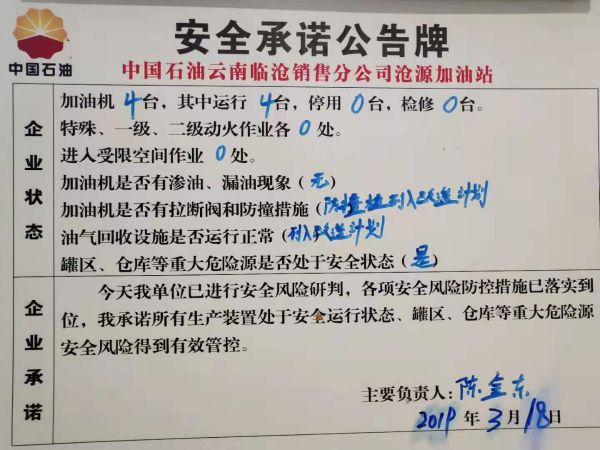 安全承诺公告牌
中国石油
中国石油云南临沧销售分公司沧源加油站
企业状态
加油机 4台，其中运行 4台，停用 0台，检修 0台。
特殊、一级、二级动火作业各 0处。
进入受限空间作业 0处。
加油机是否有渗油、漏油现象（无）
加油机是否有拉断阀和防撞措施（防撞柱列入改造计划
油气回收设施是否运行正常（列入改造计划
罐区、仓库等重大危险源是否处于安全状态（是）
企业承诺
今天我单位已进行安全风险研判，各项安全风险防控措施已落实到
位，我承诺所有生产装置处于安全运行状态、罐区、仓库等重大危险源
安全风险得到有效管控。
主要负责人：陈金东
2019 年 3 月 18 日